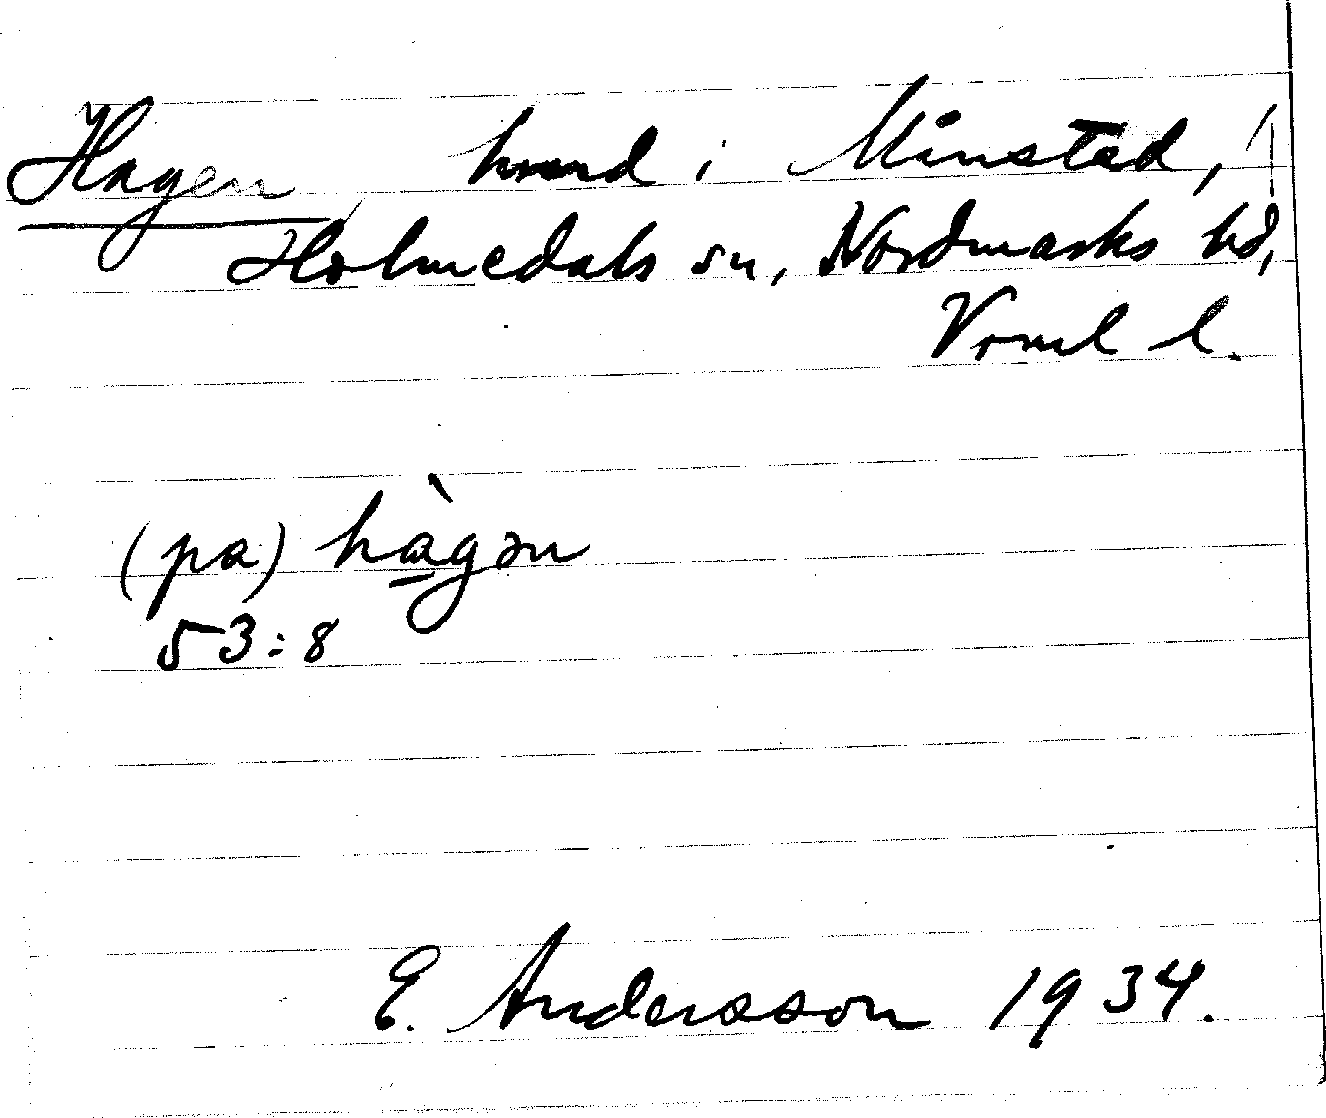 Hagen, hmnd i Minstad,
Holmedals sn, Nordmarks hd,
Vrml l.
(pa) hàgən
53:8
E. Andersson 1934.